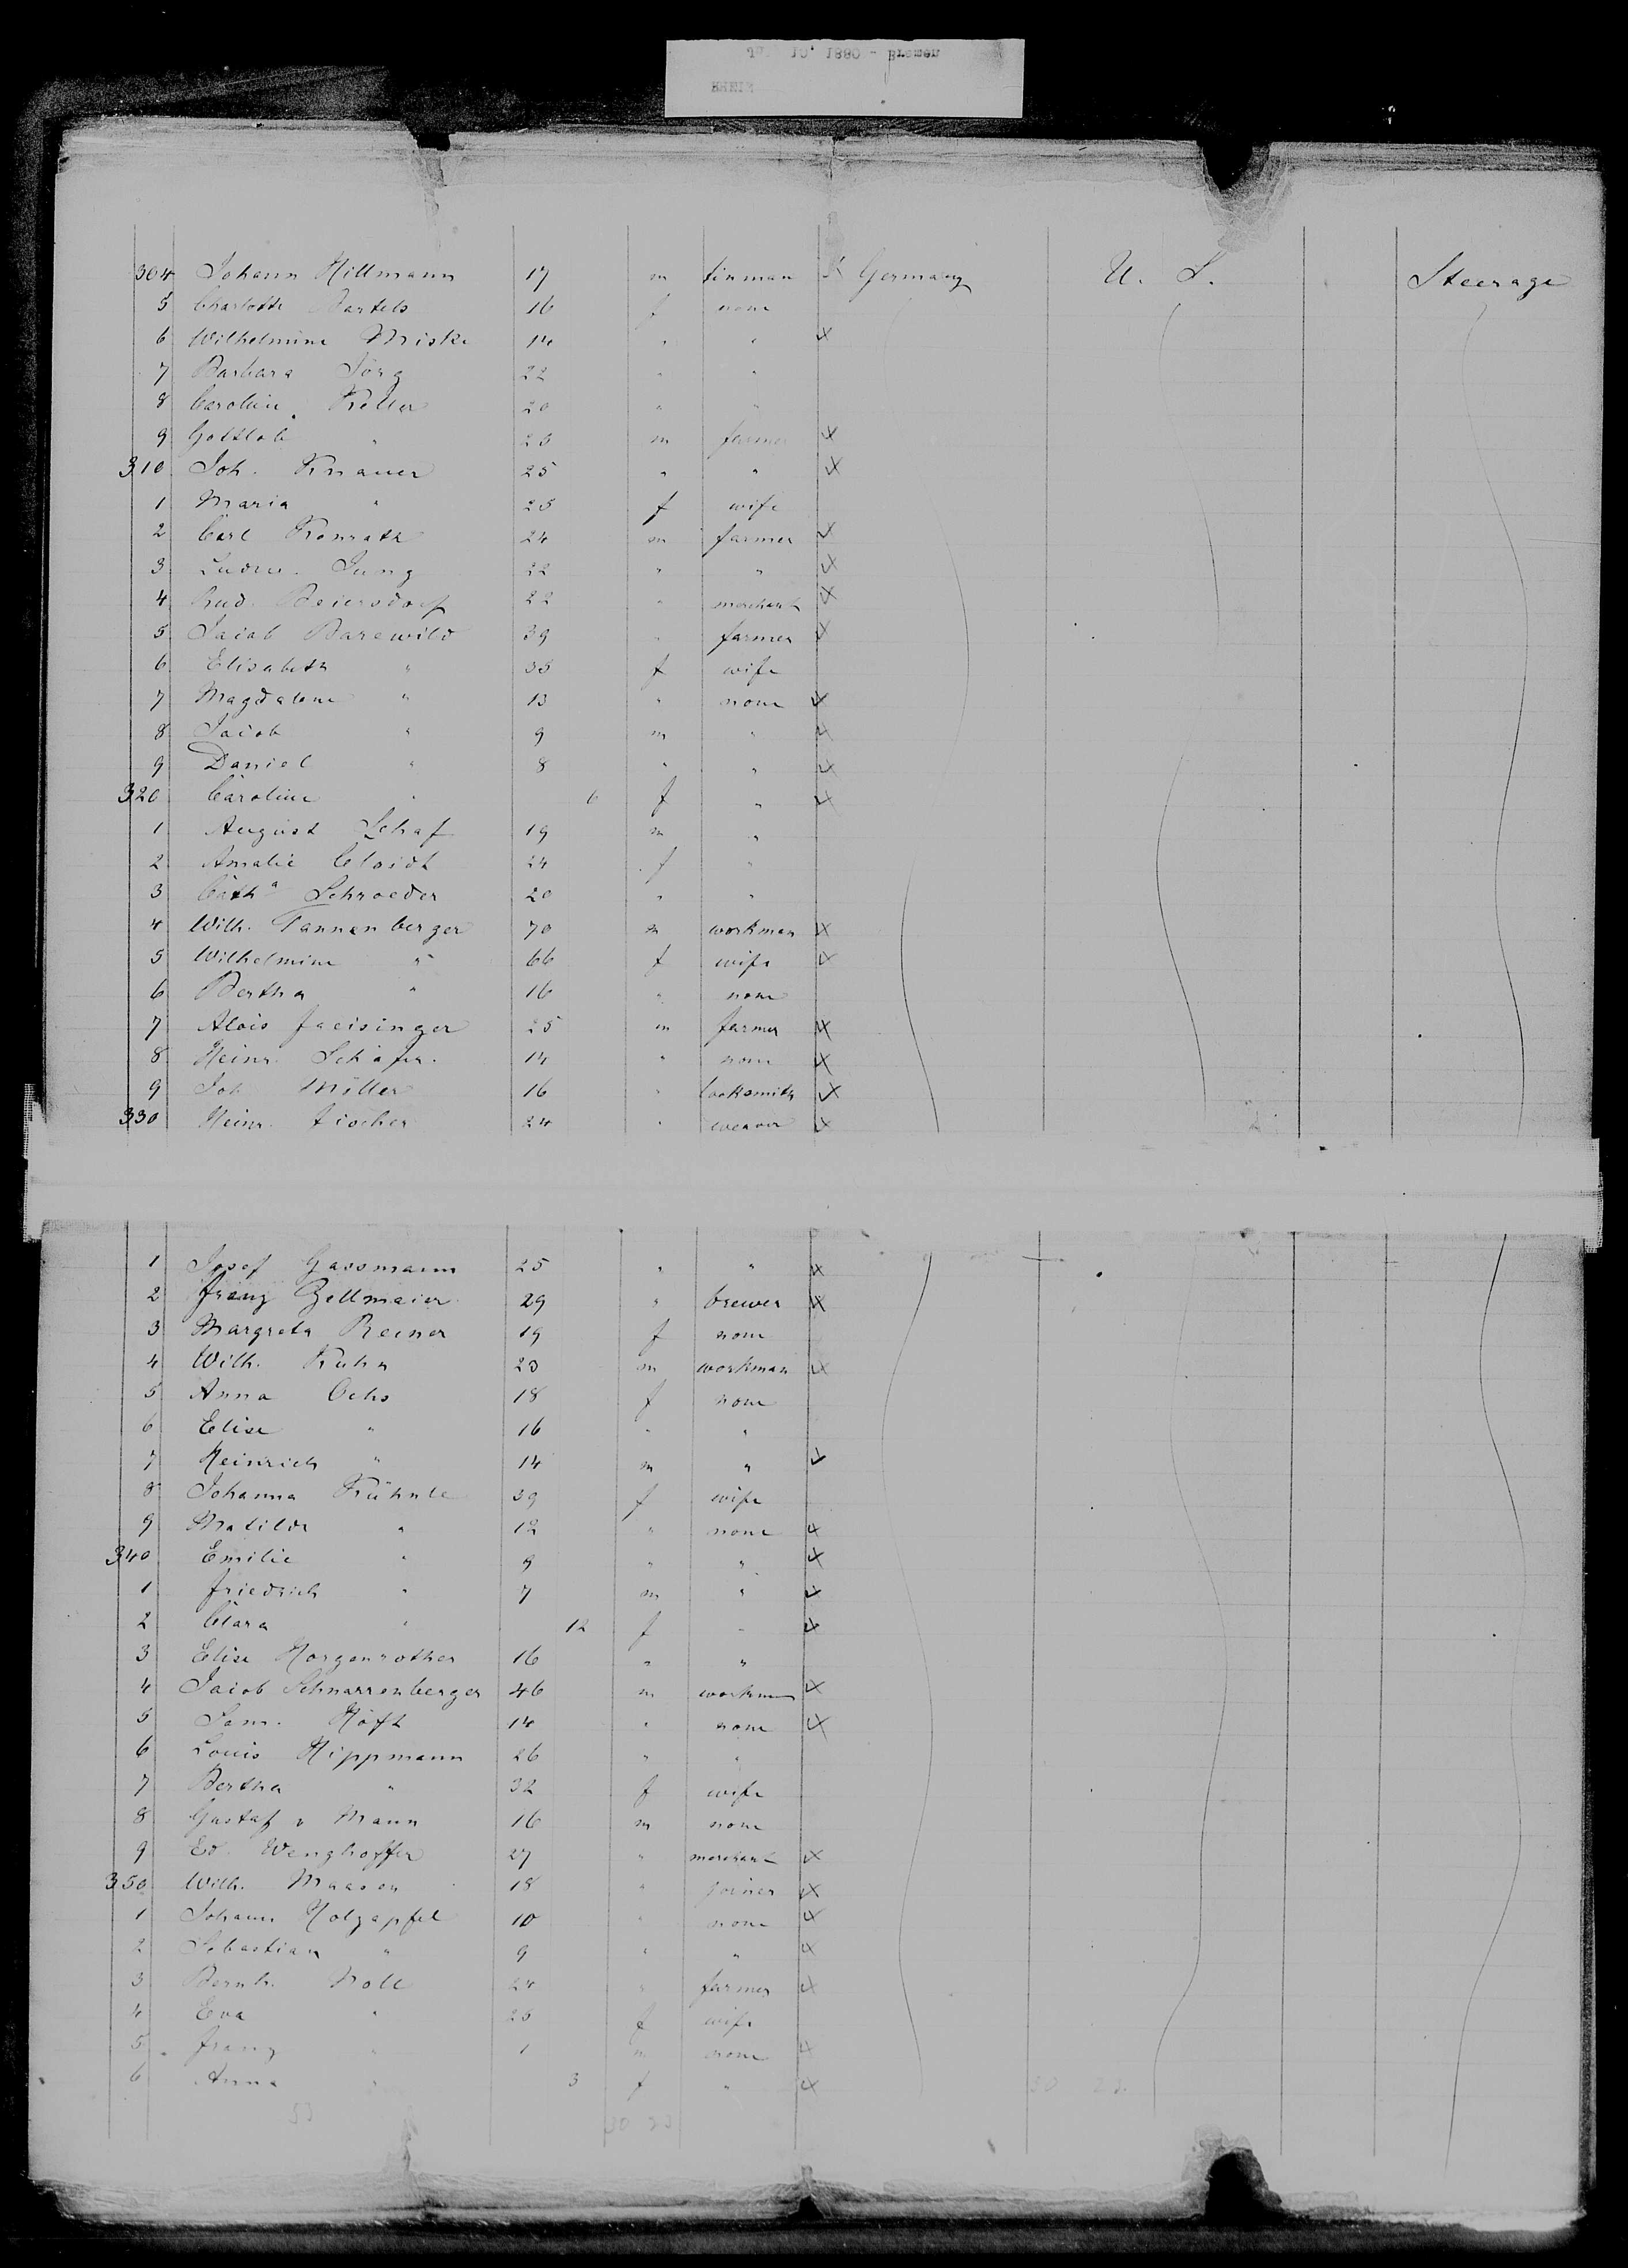 10' 1880 - Bremen
RHEIN
304 Johann Hillmann 17 m tinman X Germany U. S. Steerage
5 Charlotte Bartels 16 f none
6 Wilhelmine Miske 14 " " X
7 Barbara Jörg 22 " "
8 Caroline Keller 20 " "
9 Gottlob " 23 m farmer X
310 Joh. Knauer 25 " " X
1 Maria " 25 f wife
2 Carl Konrath 24 m farmer X
3 Ludw. Jung 22 " " X
4 Rud. Beiersdorf 22 " merchant X
5 Jacob Barewild 39 " farmer X
6 Elisabeth " 33 f wife
7 Magdalene " 13 " none X
8 Jacob " 9 m " X
9 Daniel " 8 " " X
320 Caroline " 6 f " X
1 August Schaf 19 m "
2 Amalie 24 f "
3 Cath<sup>a</sup> Schroeder 20 " "
4 Wilh. Tannenberger 70 m workman X
5 Wilhelmine " 66 f wife X
6 Bertha " 16 " none
7 Alois 25 m farmer X
8 Heinr. Schäfer. 14 " none X
9 Joh Miller 16 " locksmith X
330 Heinr. Fischer 24 " weaver X
1 Josef Gassmann 25 " " X
2 Franz Zellmaier 29 " brewer X
3 Margreta Reiner 19 f none
4 Wilh. Kuhn 23 m workman X
5 Anna Ochs 18 f none
6 Elise " 16 " "
7 Heinrich " 14 m " X
8 Johanna Kühnle 39 f wife
9 Matilda " 12 " none X
340 Emilie " 9 " " X
1 Friedrich " 7 m " X
2 Clara " 12 f " X
3 Elise Morgenrother 16 " "
4 Jacob Schnarrenberger 46 m workman X
5 Sam. Höft 14 " none X
6 Louis Hippmann 26 " "
7 Bertha " 32 f wife
8 Gustaf v Mann 16 m none
9 Ed. Wenghoffer 27 " merchant X
350 Wilh. Maasen 18 " joiner X
1 Johann Holzapfel 10 " none X
2 Sebastian " 9 " " X
3 Bernh. Noll 24 " farmer X
4 Eva " 25 f wife
5 Franz " 1 m none X
6 Anna " 3 f " X
53 30 23 30 23